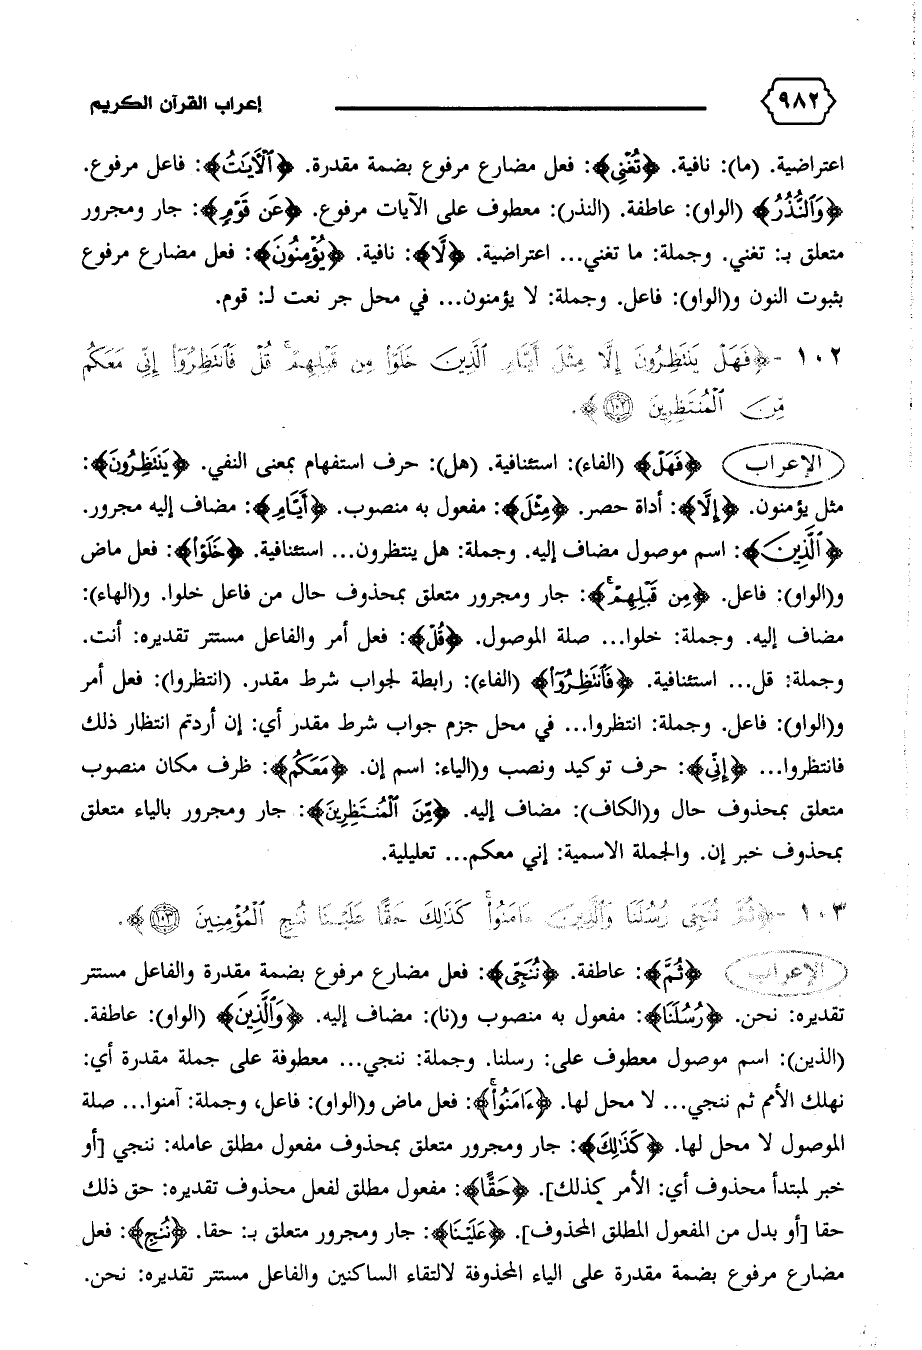 ٩٨٢ إعراب القرآن الكريم
اعتراضية. (ما): نافية. ﴿تُغْنِي﴾: فعل مضارع مرفوع بضمة مقدرة. ﴿ٱلْآيَٰتُ﴾: فاعل مرفوع.
﴿وَٱلنُّذُرُ﴾ (الواو): عاطفة. (النذر): معطوف على الآيات مرفوع. ﴿عَن قَوْمٍ﴾: جار ومجرور
متعلق بـ: تغني. وجملة: ما تغني... اعتراضية. ﴿لَّا﴾: نافية. ﴿يُؤْمِنُونَ﴾: فعل مضارع مرفوع
بثبوت النون و(الواو): فاعل. وجملة: لا يؤمنون... في محل جر نعت لـ: قوم.
١٠٢ - ﴿فَهَلْ يَنتَظِرُونَ إِلَّا مِثْلَ أَيَّامِ ٱلَّذِينَ خَلَوْا۟ مِن قَبْلِهِمْ ۚ قُلْ فَٱنتَظِرُوٓا۟ إِنِّي مَعَكُم
مِّنَ ٱلْمُنتَظِرِينَ ١٠٢﴾.
الإعراب ﴿فَهَلْ﴾ (الفاء): استئنافية. (هل): حرف استفهام بمعنى النفي. ﴿يَنتَظِرُونَ﴾:
مثل يؤمنون. ﴿إِلَّا﴾: أداة حصر. ﴿مِثْلَ﴾: مفعول به منصوب. ﴿أَيَّامِ﴾: مضاف إليه مجرور.
﴿ٱلَّذِينَ﴾: اسم موصول مضاف إليه. وجملة: هل ينتظرون... استئنافية. ﴿خَلَوْا۟﴾: فعل ماض
و(الواو): فاعل. ﴿مِن قَبْلِهِمْ ۚ﴾: جار ومجرور متعلق بمحذوف حال من فاعل خلوا. و(الهاء):
مضاف إليه. وجملة: خلوا... صلة الموصول. ﴿قُلْ﴾: فعل أمر والفاعل مستتر تقديره: أنت.
وجملة: قل... استئنافية. ﴿فَٱنتَظِرُوٓا۟﴾ (الفاء): رابطة لجواب شرط مقدر. (انتظروا): فعل أمر
و(الواو): فاعل. وجملة: انتظروا... في محل جزم جواب شرط مقدر أي: إن أردتم انتظار ذلك
فانتظروا... ﴿إِنِّي﴾: حرف توكيد ونصب و(الياء: اسم إن. ﴿مَعَكُم﴾: ظرف مكان منصوب
متعلق بمحذوف حال و(الكاف): مضاف إليه. ﴿مِّنَ ٱلْمُنتَظِرِينَ﴾: جار ومجرور بالياء متعلق
بمحذوف خبر إن. والجملة الاسمية: إني معكم... تعليلية.
١٠٣ - ﴿ثُمَّ نُنَجِّي رُسُلَنَا وَٱلَّذِينَ ءَامَنُوا۟ ۚ كَذَٰلِكَ حَقًّا عَلَيْنَا نُنجِ ٱلْمُؤْمِنِينَ ١٠٣﴾.
الإعراب ﴿ثُمَّ﴾: عاطفة. ﴿نُنَجِّي﴾: فعل مضارع مرفوع بضمة مقدرة والفاعل مستتر
تقديره: نحن. ﴿رُسُلَنَا﴾: مفعول به منصوب و(نا): مضاف إليه. ﴿وَٱلَّذِينَ﴾ (الواو): عاطفة.
(الذين): اسم موصول معطوف على: رسلنا. وجملة: ننجي... معطوفة على جملة مقدرة أي:
نهلك الأمم ثم ننجي... لا محل لها. ﴿ءَامَنُوا۟ ۚ﴾: فعل ماض و(الواو): فاعل، وجملة: آمنوا... صلة
الموصول لا محل لها. ﴿كَذَٰلِكَ﴾: جار ومجرور متعلق بمحذوف مفعول مطلق عامله: ننجي [أو
خبر لمبتدأ محذوف أي: الأمر كذلك]. ﴿حَقًّا﴾: مفعول مطلق لفعل محذوف تقديره: حق ذلك
حقا [أو بدل من المفعول المطلق المحذوف]. ﴿عَلَيْنَا﴾: جار ومجرور متعلق بـ: حقا. ﴿نُنجِ﴾: فعل
مضارع مرفوع بضمة مقدرة على الياء المحذوفة لالتقاء الساكنين والفاعل مستتر تقديره: نحن.